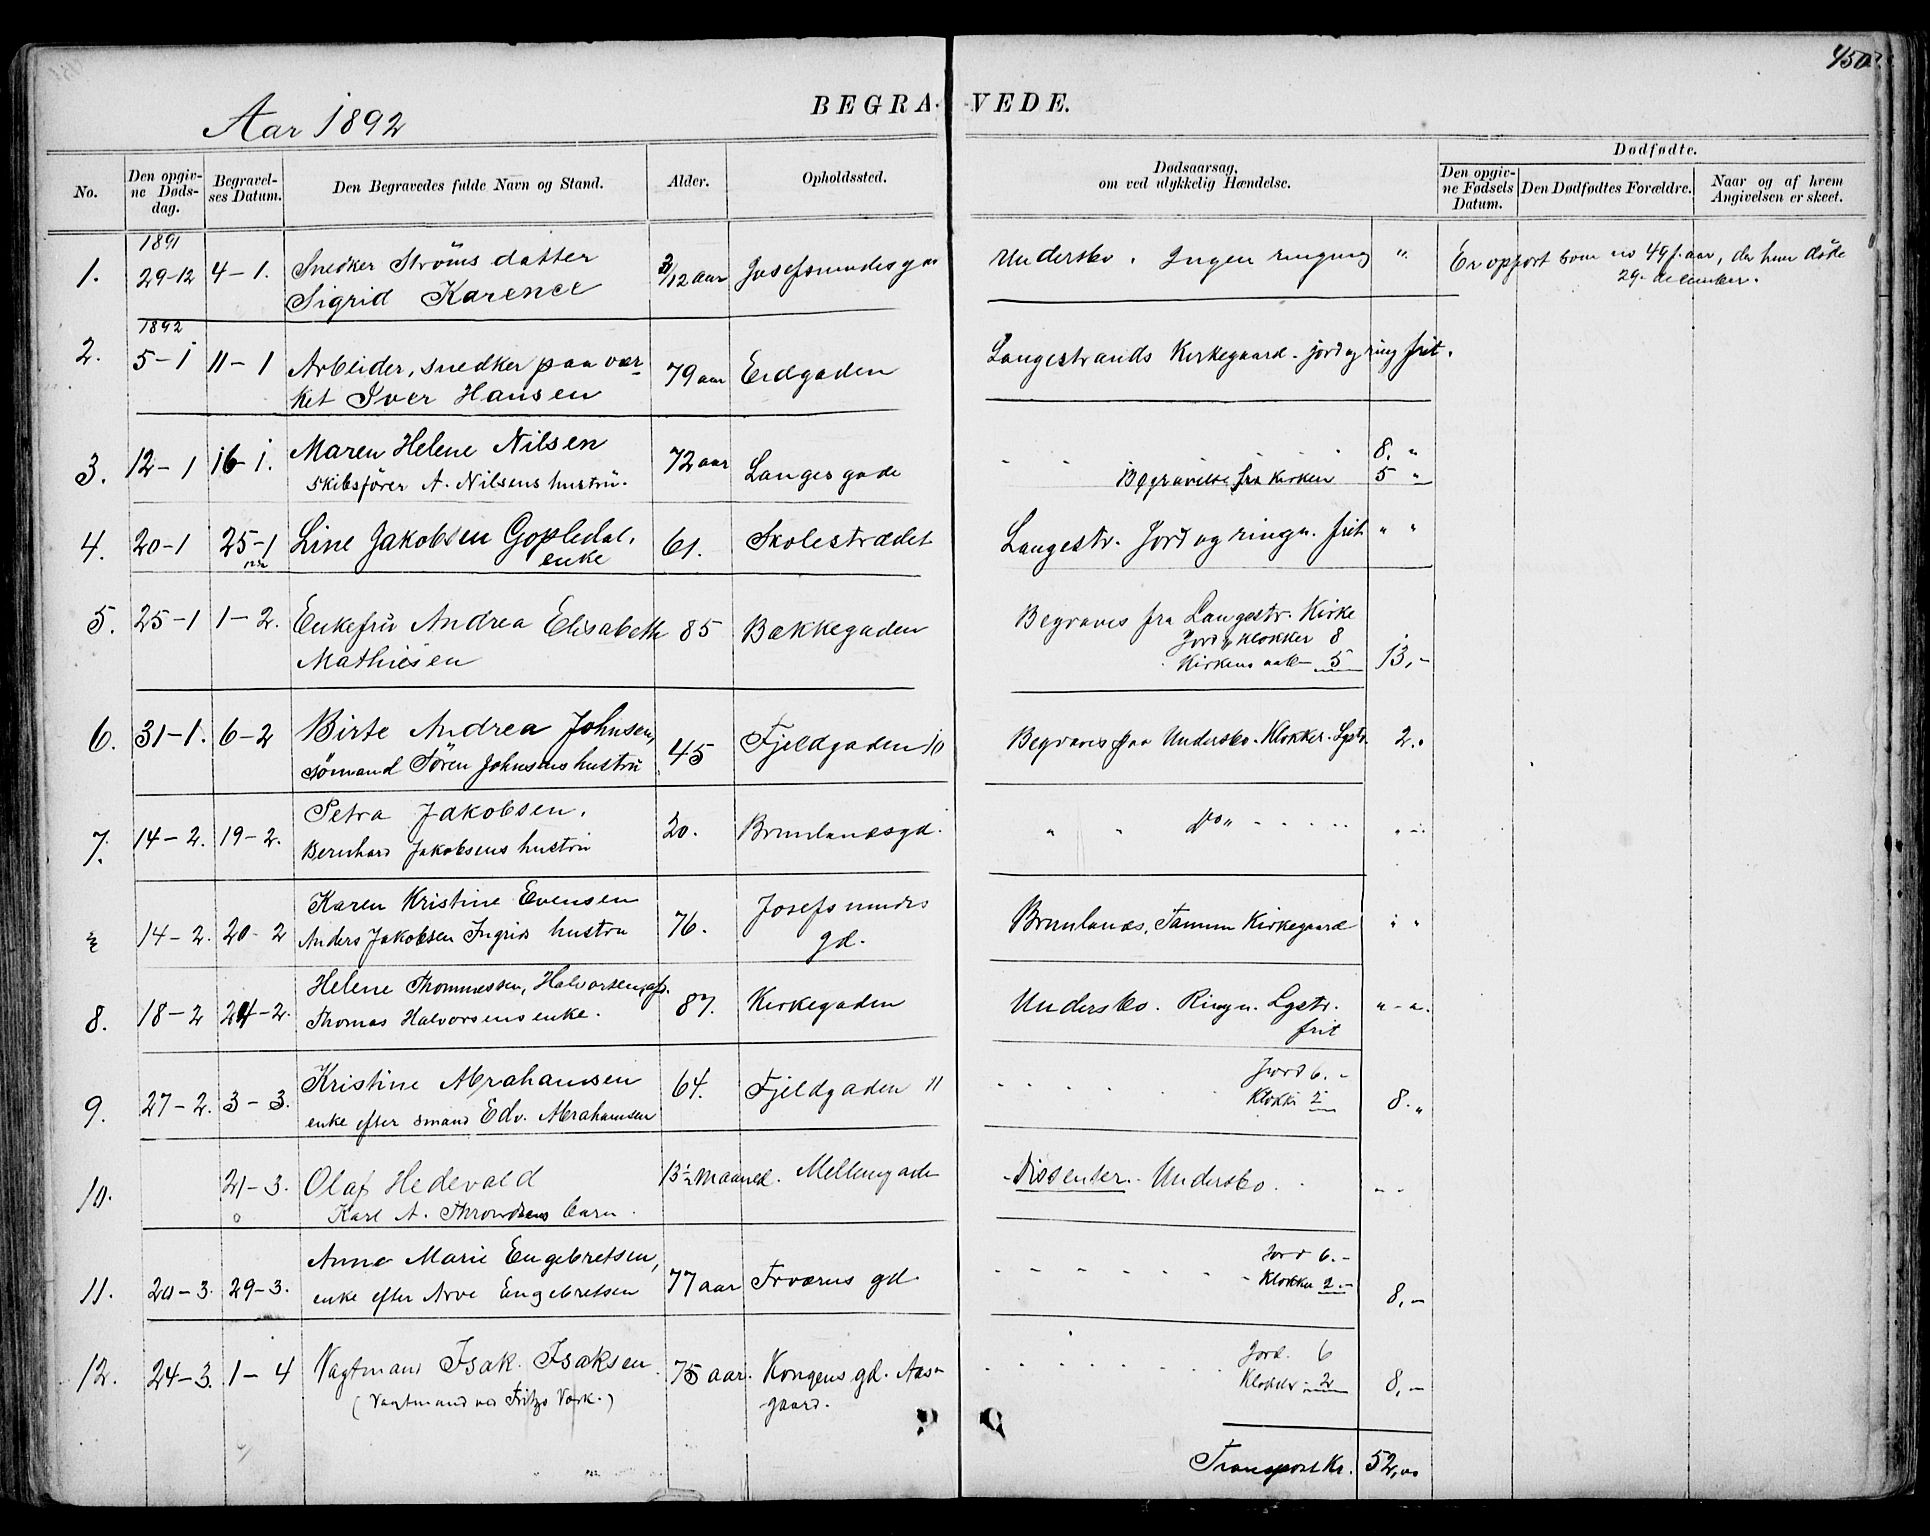 450
BEGRAVEDE.
Aar 1892
No.
Den opgivne Dødsdag.
Begravelses Datum.
Den Begravedes fulde Navn og Stand.
Alder.
Opholdssted.
Dødsaarsag,
om ved ulykkelig Hændelse.
Dødfødte.
Den opgivne Fødsels Datum.
Den Dødfødtes Forældre.
Naar og af hvem Angivelsen er skeet.
1891
1. 29-12 4-1. Snedker Ströms datter 2/12 aar Undersbo. Ingen ringing " Er opført som no 49 f. aar, da hun døde
Sigrid Karence 29. december.
1892
2. 5-1 11-1 Arbeider, snedker paa vær- 79 aar Eidgaden Langestrands Kirkegaard. jord og ring frit.
ket Iver Hansen
3. 12-1 16-1. Maren Helene Nilsen 72 aar Langesgade " " 8. "
Skibsfører A. Nilsens hustru. Begravelse fra Kirken 5 "
4. 20-1 25-1 Line Jakobsen Gopledal, 61. Skolestrædet Langestr. Jord og ringn. frit " "
enke
5. 25-1 1-2. Enkefru Andrea Elisabeth 85 Bakkegaden Begraves fra Langestr. Kirke
Mathiesen Jord og klokker 8
Kirkens 5 13,-
6. 31-1. 6-2 Birte Andrea Johnsen, 45 Fjeldgaden 10 Begraves paa Undersbo. Klokker. Lgstr. 2.
sømand Sören Johnsens hustru
7. 14-2. 19-2. Petra Jakobsen. 20. Brunlanesgd. " " Do "
Bernhard Jakobsens hustru
14-2. 20-2 Karen Kristine Evensen 76. Josefsmindes Brunlanes, Tanum Kirkegaard " "
Anders Jakobsen hustru gd.
8. 18-2 24-2. Helene Thommessen, 87. Kirkegaden Undersbo. Ringn. Lgstr. " - ".
Thomas Halvorsens enke. frit
9. 27-2. 3-3. Kristine Abrahamsen 64. Fjeldgaden 11 Jord 6. -
enke efter smand Edv. Abrahamsen Klokke 2 8. "
10. 21-3. Olaf Hedevald 13½ Maaned. Mellemgaden - Dissenter. - Undersbo.
Karl A. Throndsens barn.
11. 20-3. 29-3. Anne Marie Engebretsen, 77 aar gd. Jord 6. -
enke efter Arve Engebretsen Klokker 2. - 8,-
12. 24-3. 1-4 Vagtmand Isak Isaksen 75 aar. Kongens gd. Aas- Jord. 6
(Vagtmand ved Fritzø Værk.) gaard. Klokker 2 8,-
Transport Kr. 52,00